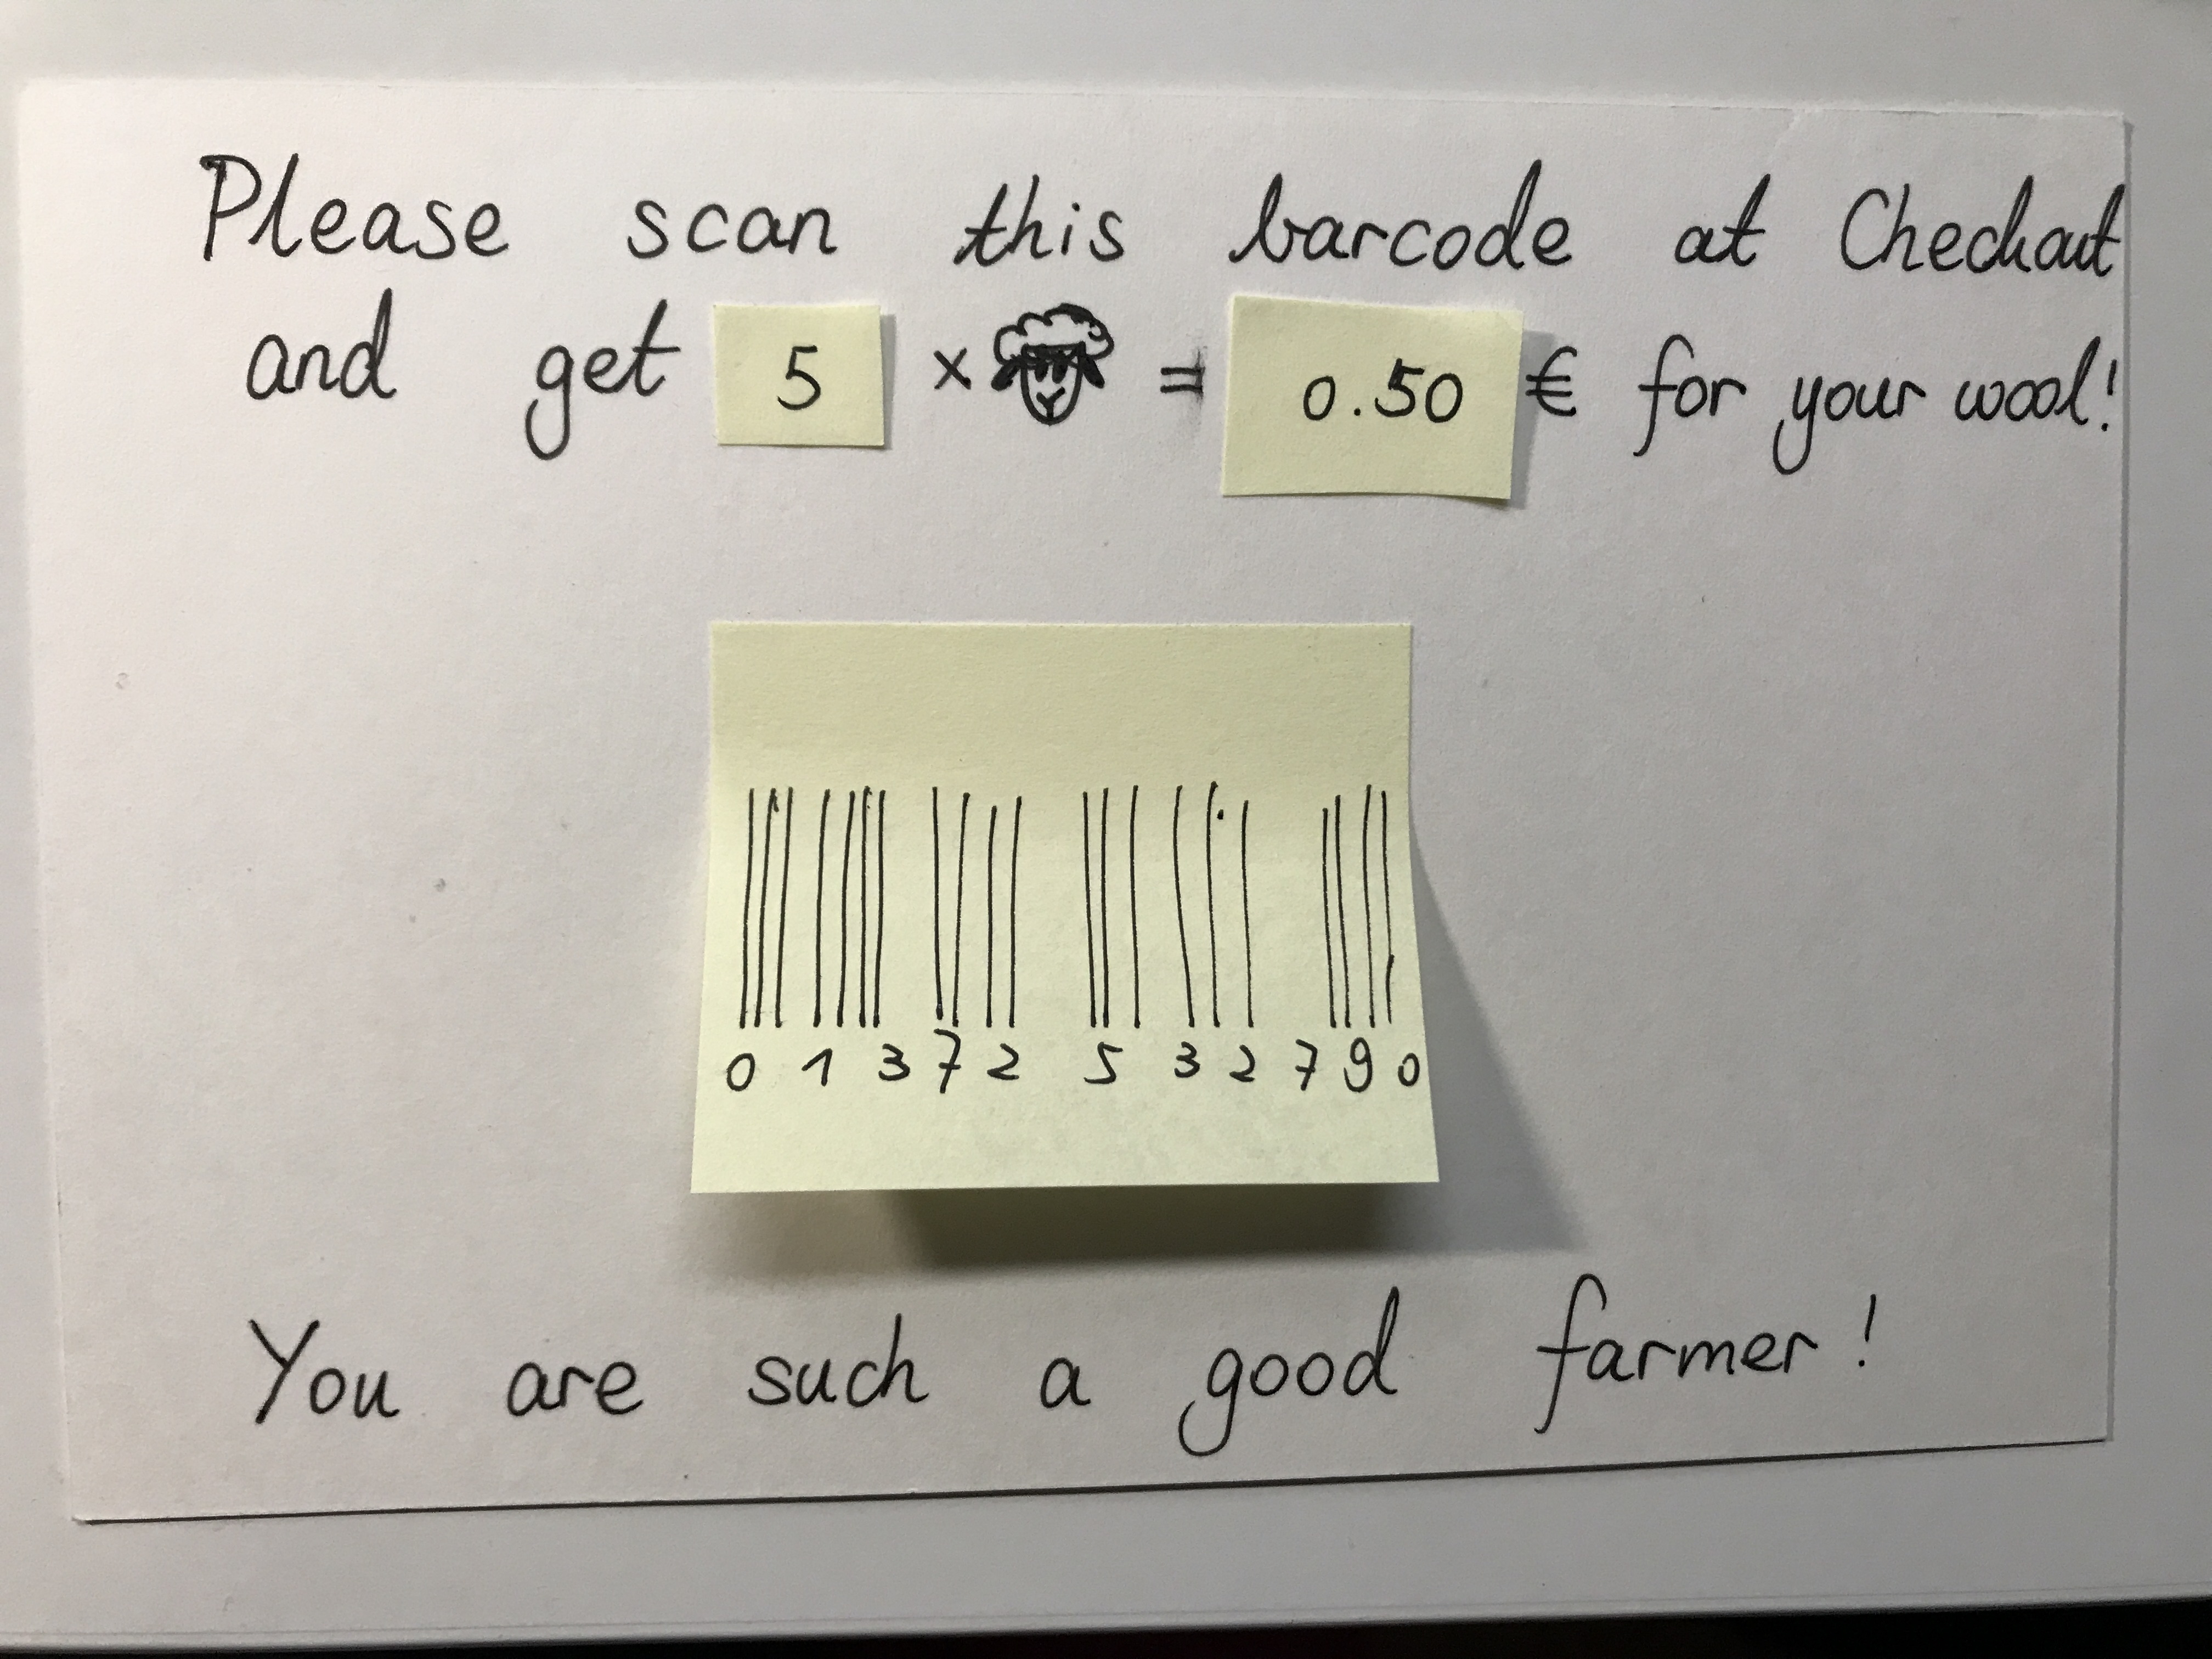 Please scan this barcode at Checkout
and get 5 x = 0.50 € for your wool!
0 1 3 7 2 5 3 2 7 9 0
You are such a good farmer!